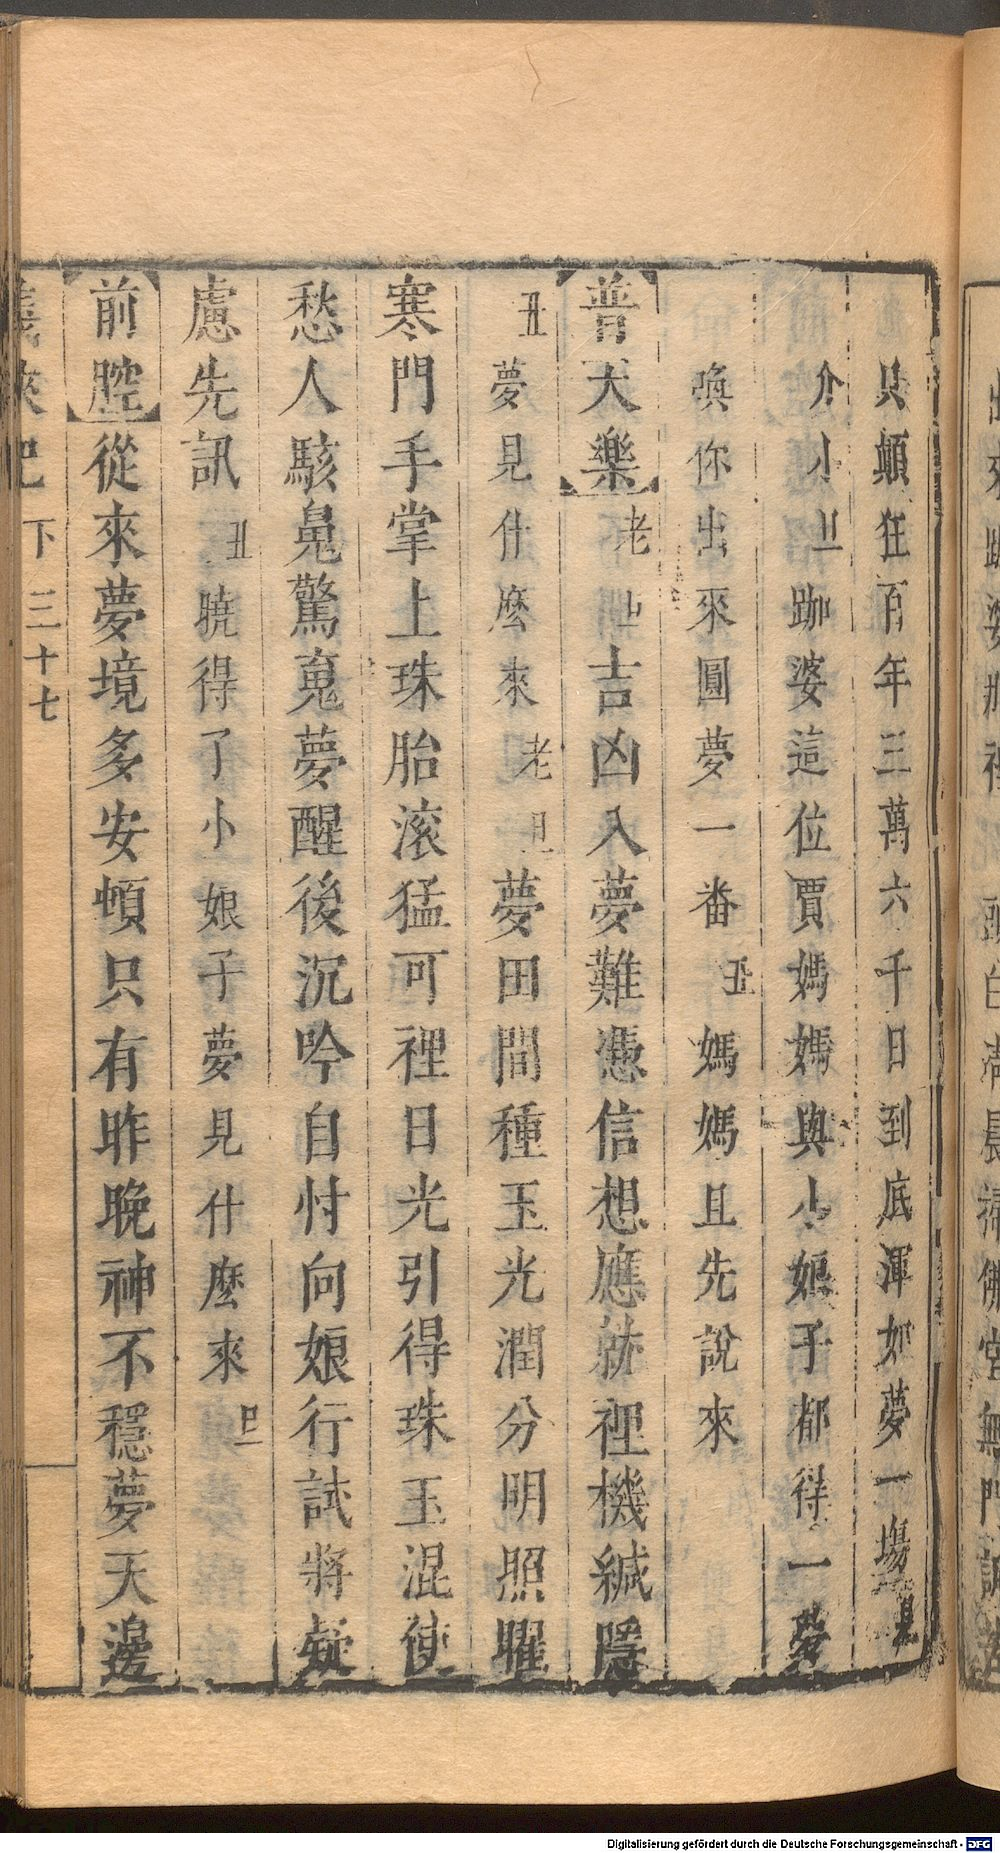 只顛狂百年三萬六千日到底渾如夢一塲見
介小旦跏婆這位賈媽媽與小娘子都得一夢
喚你出來圓夢一番丑媽媽且先說來
普天樂老旦吉凶入夢難憑信想應就裡機緘隱
丑夢見什麽來老旦夢田間種玉光潤分明照耀
寒門手掌上珠胎滚猛可裡日光引得珠玉混使
愁人駭鬼驚寬夢醒後沉吟自忖向娘行試將疑
慮先訊丑曉得了小娘子夢見什麽來旦
前腔從來夢境多安頓只有昨晚神不穩夢天邊
義俠記 下 三十七
Digitalisierung gefördert durch die Deutsche Forschungsgemeinschaft - DFG